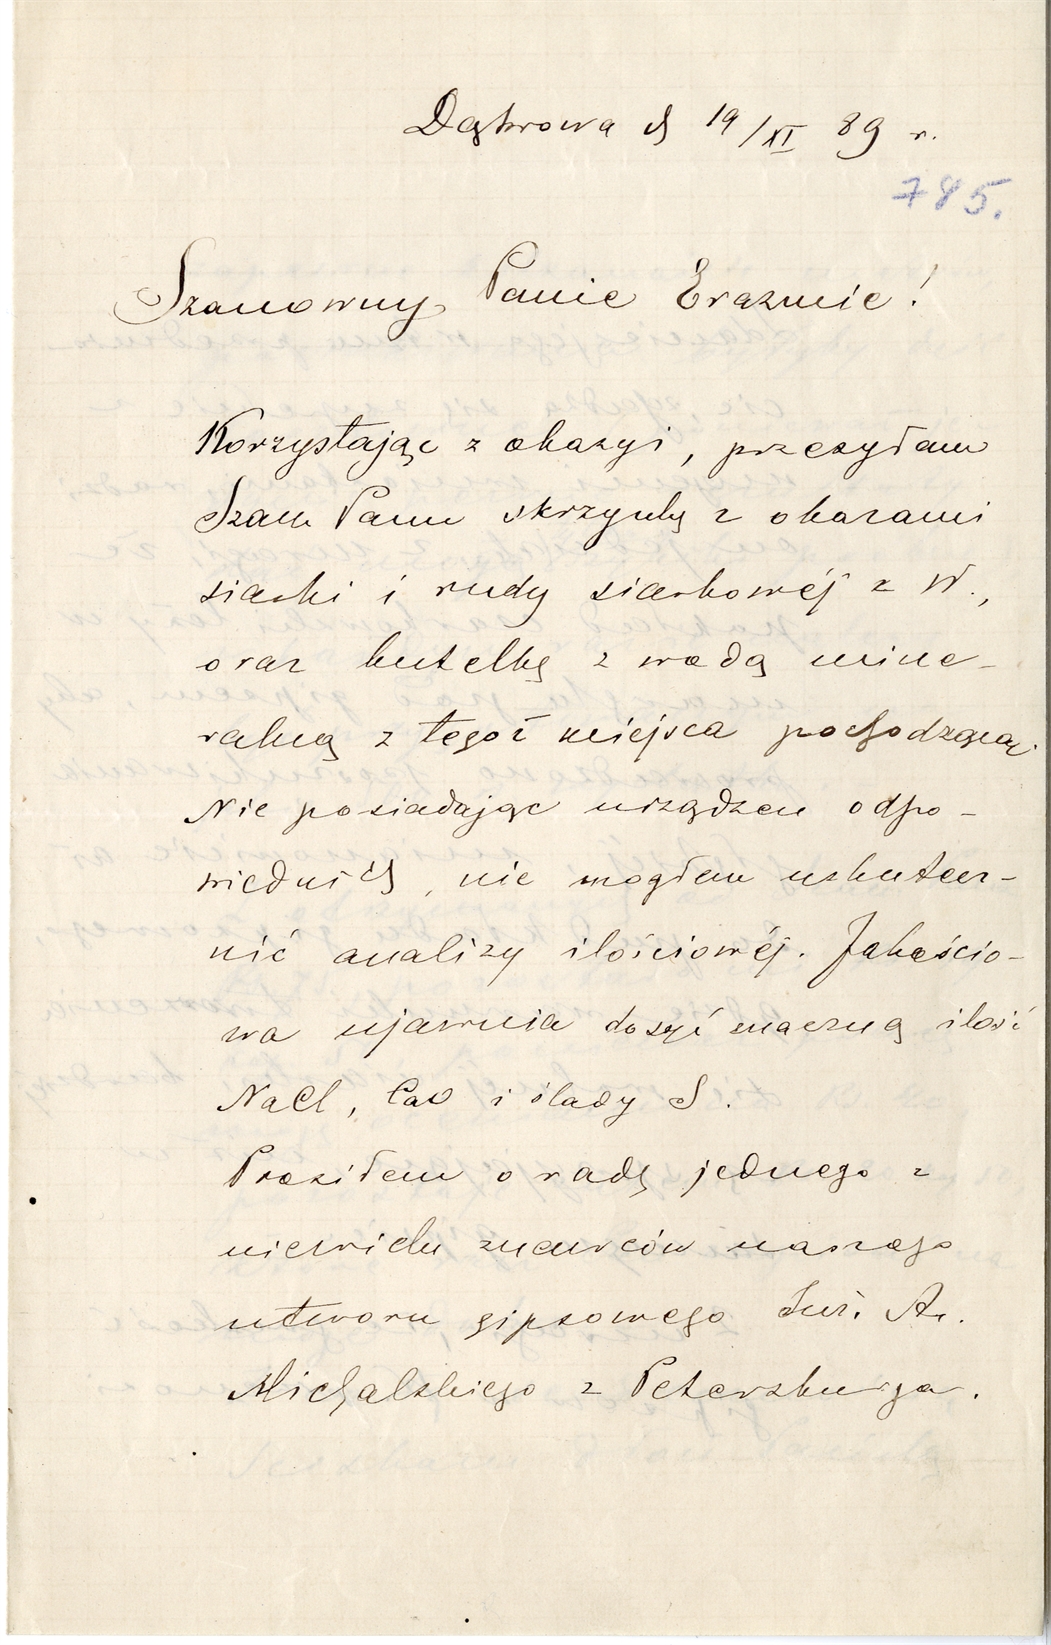 Dąbrowa d 19/XI 89 r.
785.
Szanowny Panie Erazmie!
Korzystając z okazyi, przesyłam
Szan Panu skrzynkę z okazami
siarki i rudy siarkowéj z W.,
oraz butelkę z wodą mine-
ralną z tegoż miejsca pochodzącą.
Nie posiadając urządzeń odpo-
wiednich, nie mogłem uskutecz-
nić analizy ilościowéj. Jakościo-
wa ujawnia dosyć znaczną ilość
NaCl, CaO i ślady S.
Prosiłem o radę jednego z
niewielu znawców naszego
utworu gipsowego Inż. A.
Michalskiego z Petersburga.